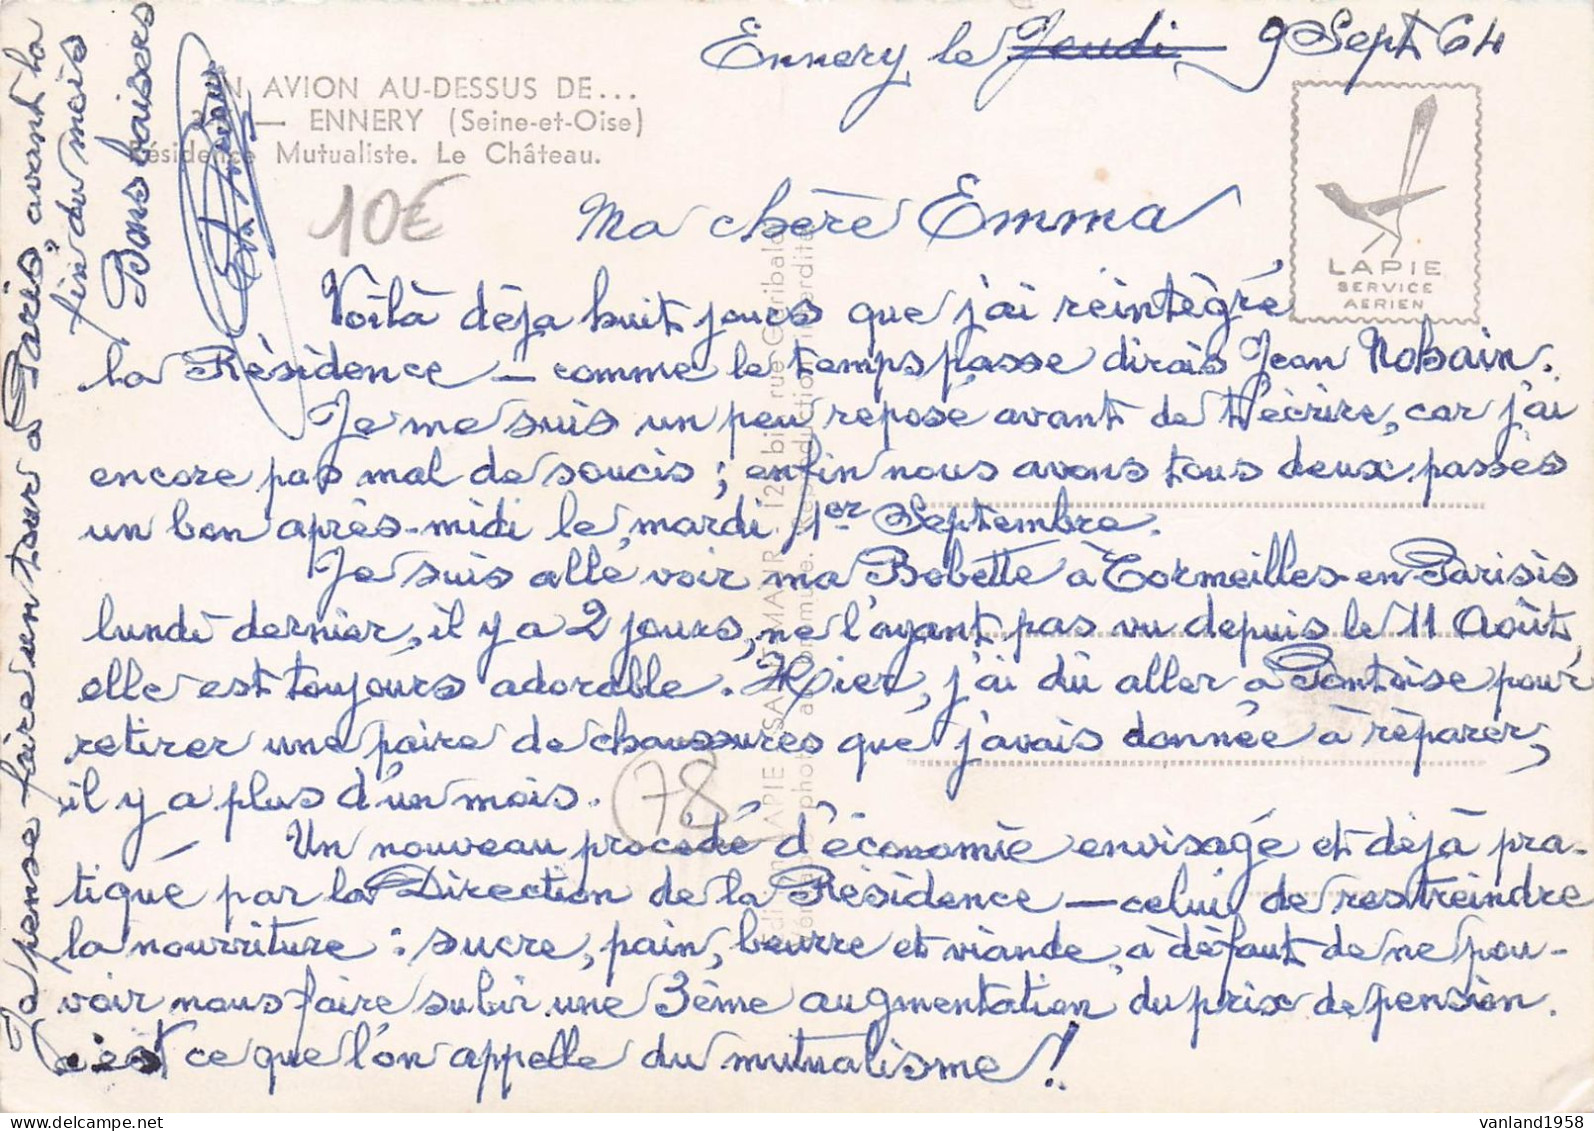 Ennery le ~~Jeudi~~ 9 Sept 64
EN AVION AU-DESSUS DE...
— ENNERY (Seine-et-Oise)
Résidence Mutualiste. Le Château.
10€
LAPIE
SERVICE
AERIEN
Ma chère Emma
Voilà déja huit jours que j'ai réintègré
la Résidence — comme le temps passe dirais Jean Nohain.
Je me suis un peu reposé avant de t'écrire, car j'ai
encore pas mal de soucis ; enfin nous avons tous deux passés
un bon après-midi le mardi 1er Septembre.
Je suis allé voir ma Bobette à Cormeilles-en-Parisis
lundi dernier, il y a 2 jours, ne l'ayant pas vu depuis le 11 Août,
elle est toujours adorable. Hier, j'ai dû aller à Pontoise pour
retirer une paire de chaussures que j'avais donnée à réparer,
il y a plus d'un mois.
(78)
Un nouveau procédé d'économie envisagé et déjà pra-
tiqué par la Direction de la Résidence — celui de restreindre
la nourriture : sucre, pain, beurre et viande, à défaut de ne pou-
voir nous faire subir une 3ème augmentation du prix de pension.
c'est ce que l'on appelle du mutualisme !
Je pense faire un tour à "Paris" avant la
fin du mois
Bons baisers
LAPIE SAINT-MAUR - bis, rue Garibaldi
Reproduction interdite
vanland1958